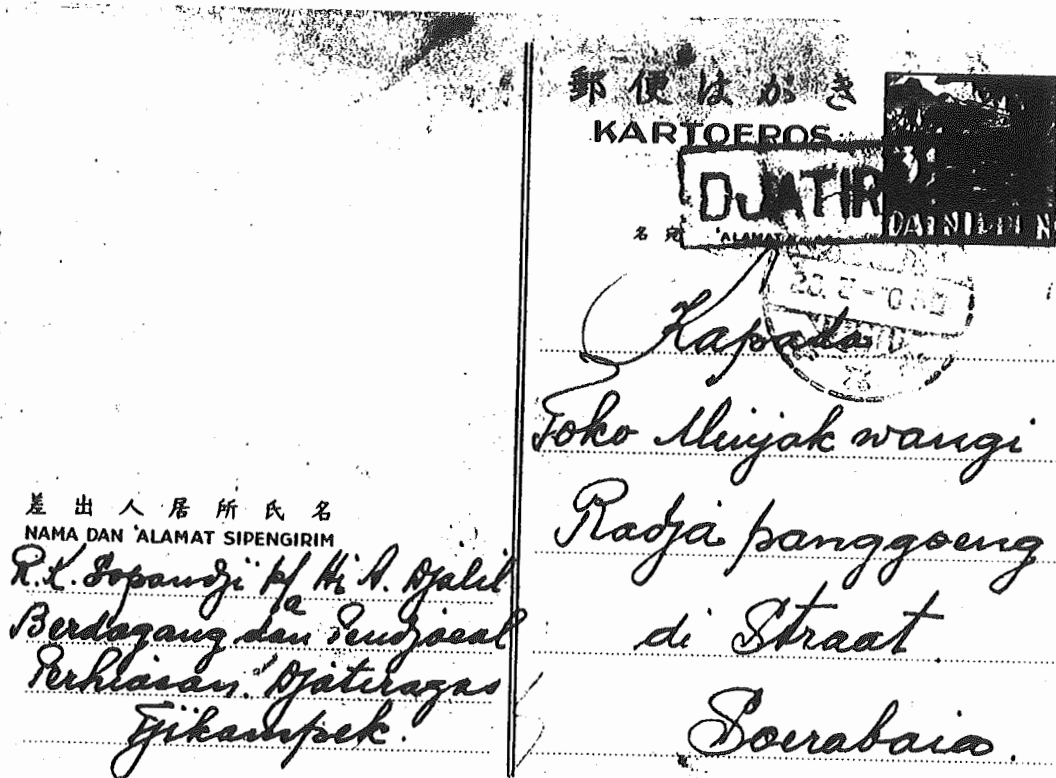 郵便はがき
KARTOEPOS
DJATIR
名宛
'ALAMAT
DAI NIPPON
Kapada
Toko Minjak wangi
Radja panggoeng
di Straat
Soerabaia.
差出人居所氏名
NAMA DAN 'ALAMAT SIPENGIRIM
R.K. Sopandji p/a Hi A. Djalil
Berdagang dan Pendjoeal
Perhiasan. Djatiragas
Tjikampek.